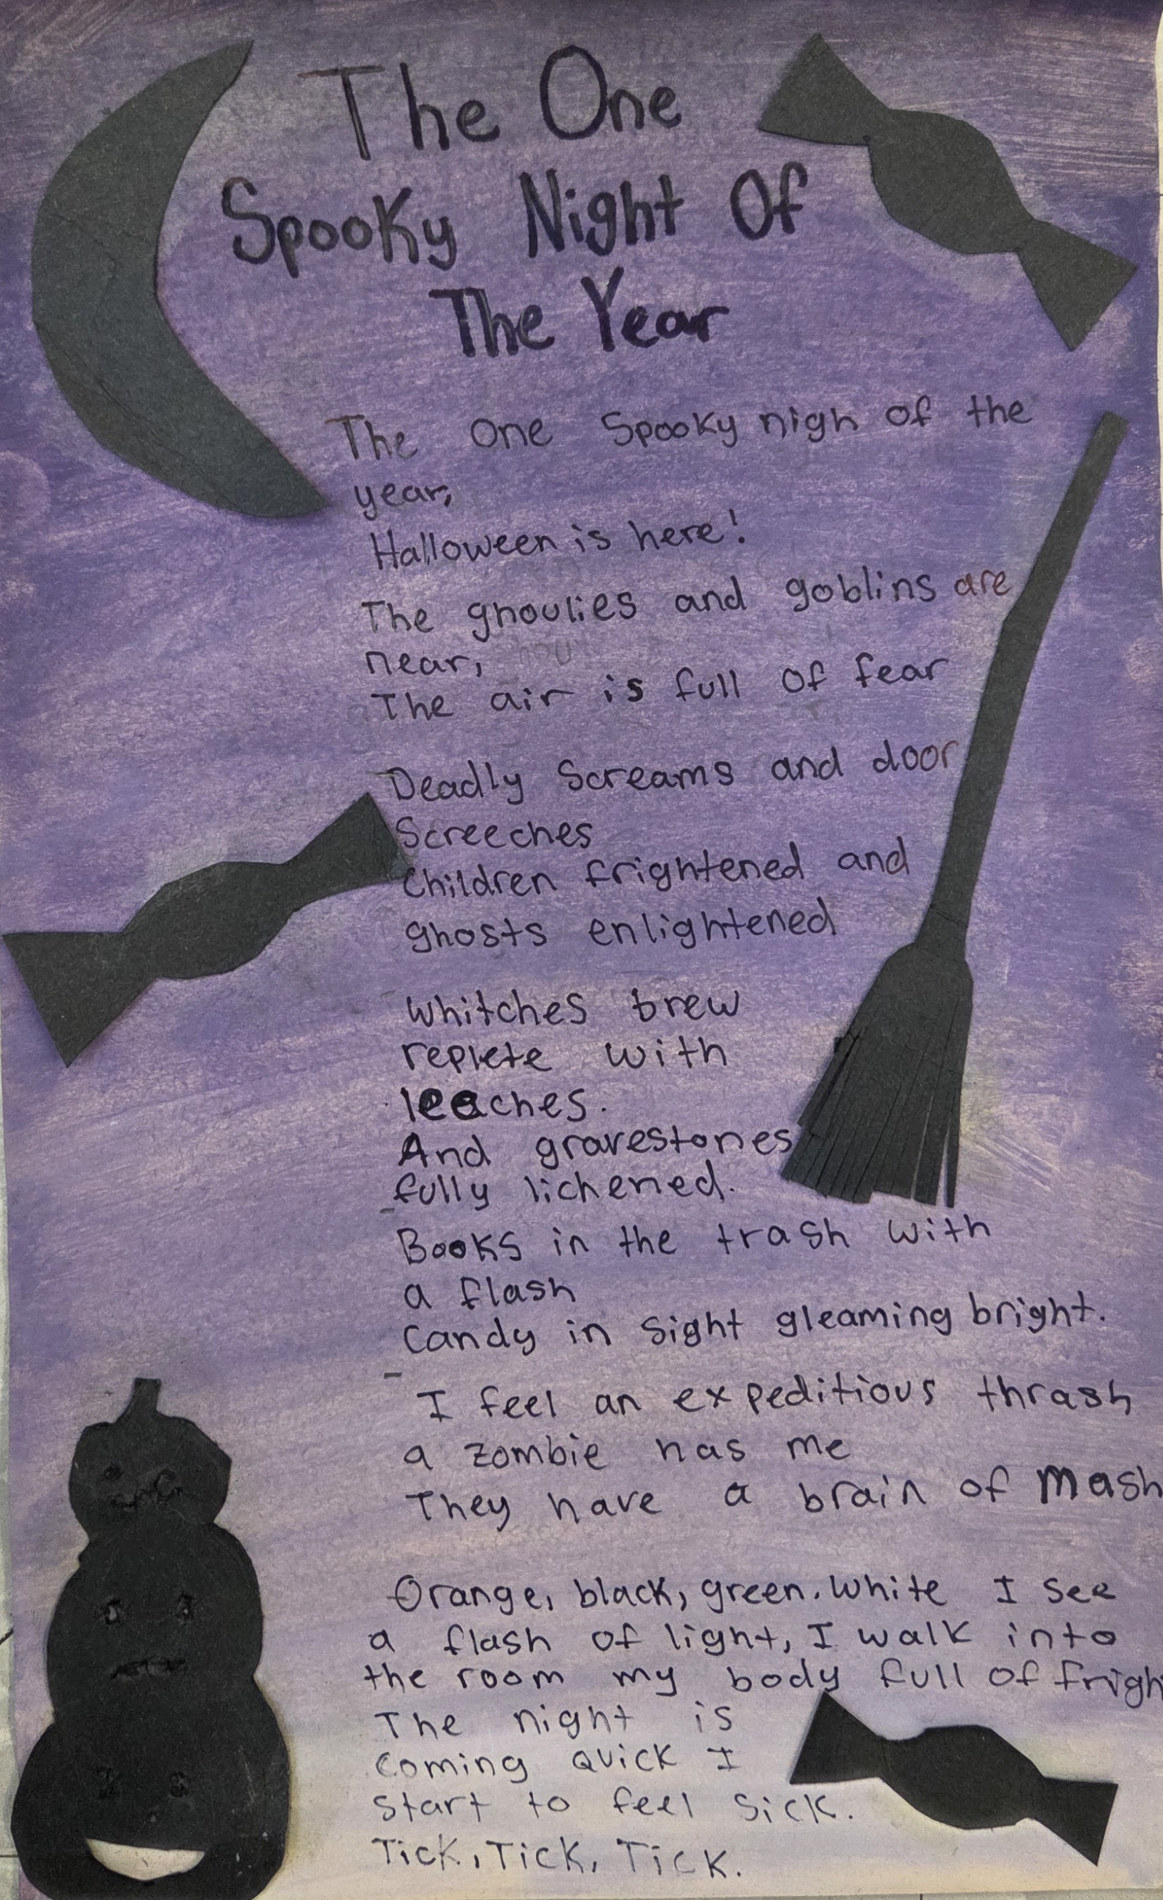 The One
Spooky Night Of
The Year
The One Spooky nigh of the
year,
Halloween is here!
The ghoulies and goblins are
near,
The air is full of fear
Deadly Screams and door
Screeches
Children frightened and
ghosts enlightened
Whitches brew
replete with
leeches.
And gravestones
fully lichened.
Books in the trash with
a flash
Candy in sight gleaming bright.
I feel an expeditious thrash
a zombie has me
They have a brain of mash
Orange, black, green. White I see
a flash of light, I walk into
the room my body full of frigh
The night is
coming quick I
start to feel sick.
Tick, Tick, Tick.